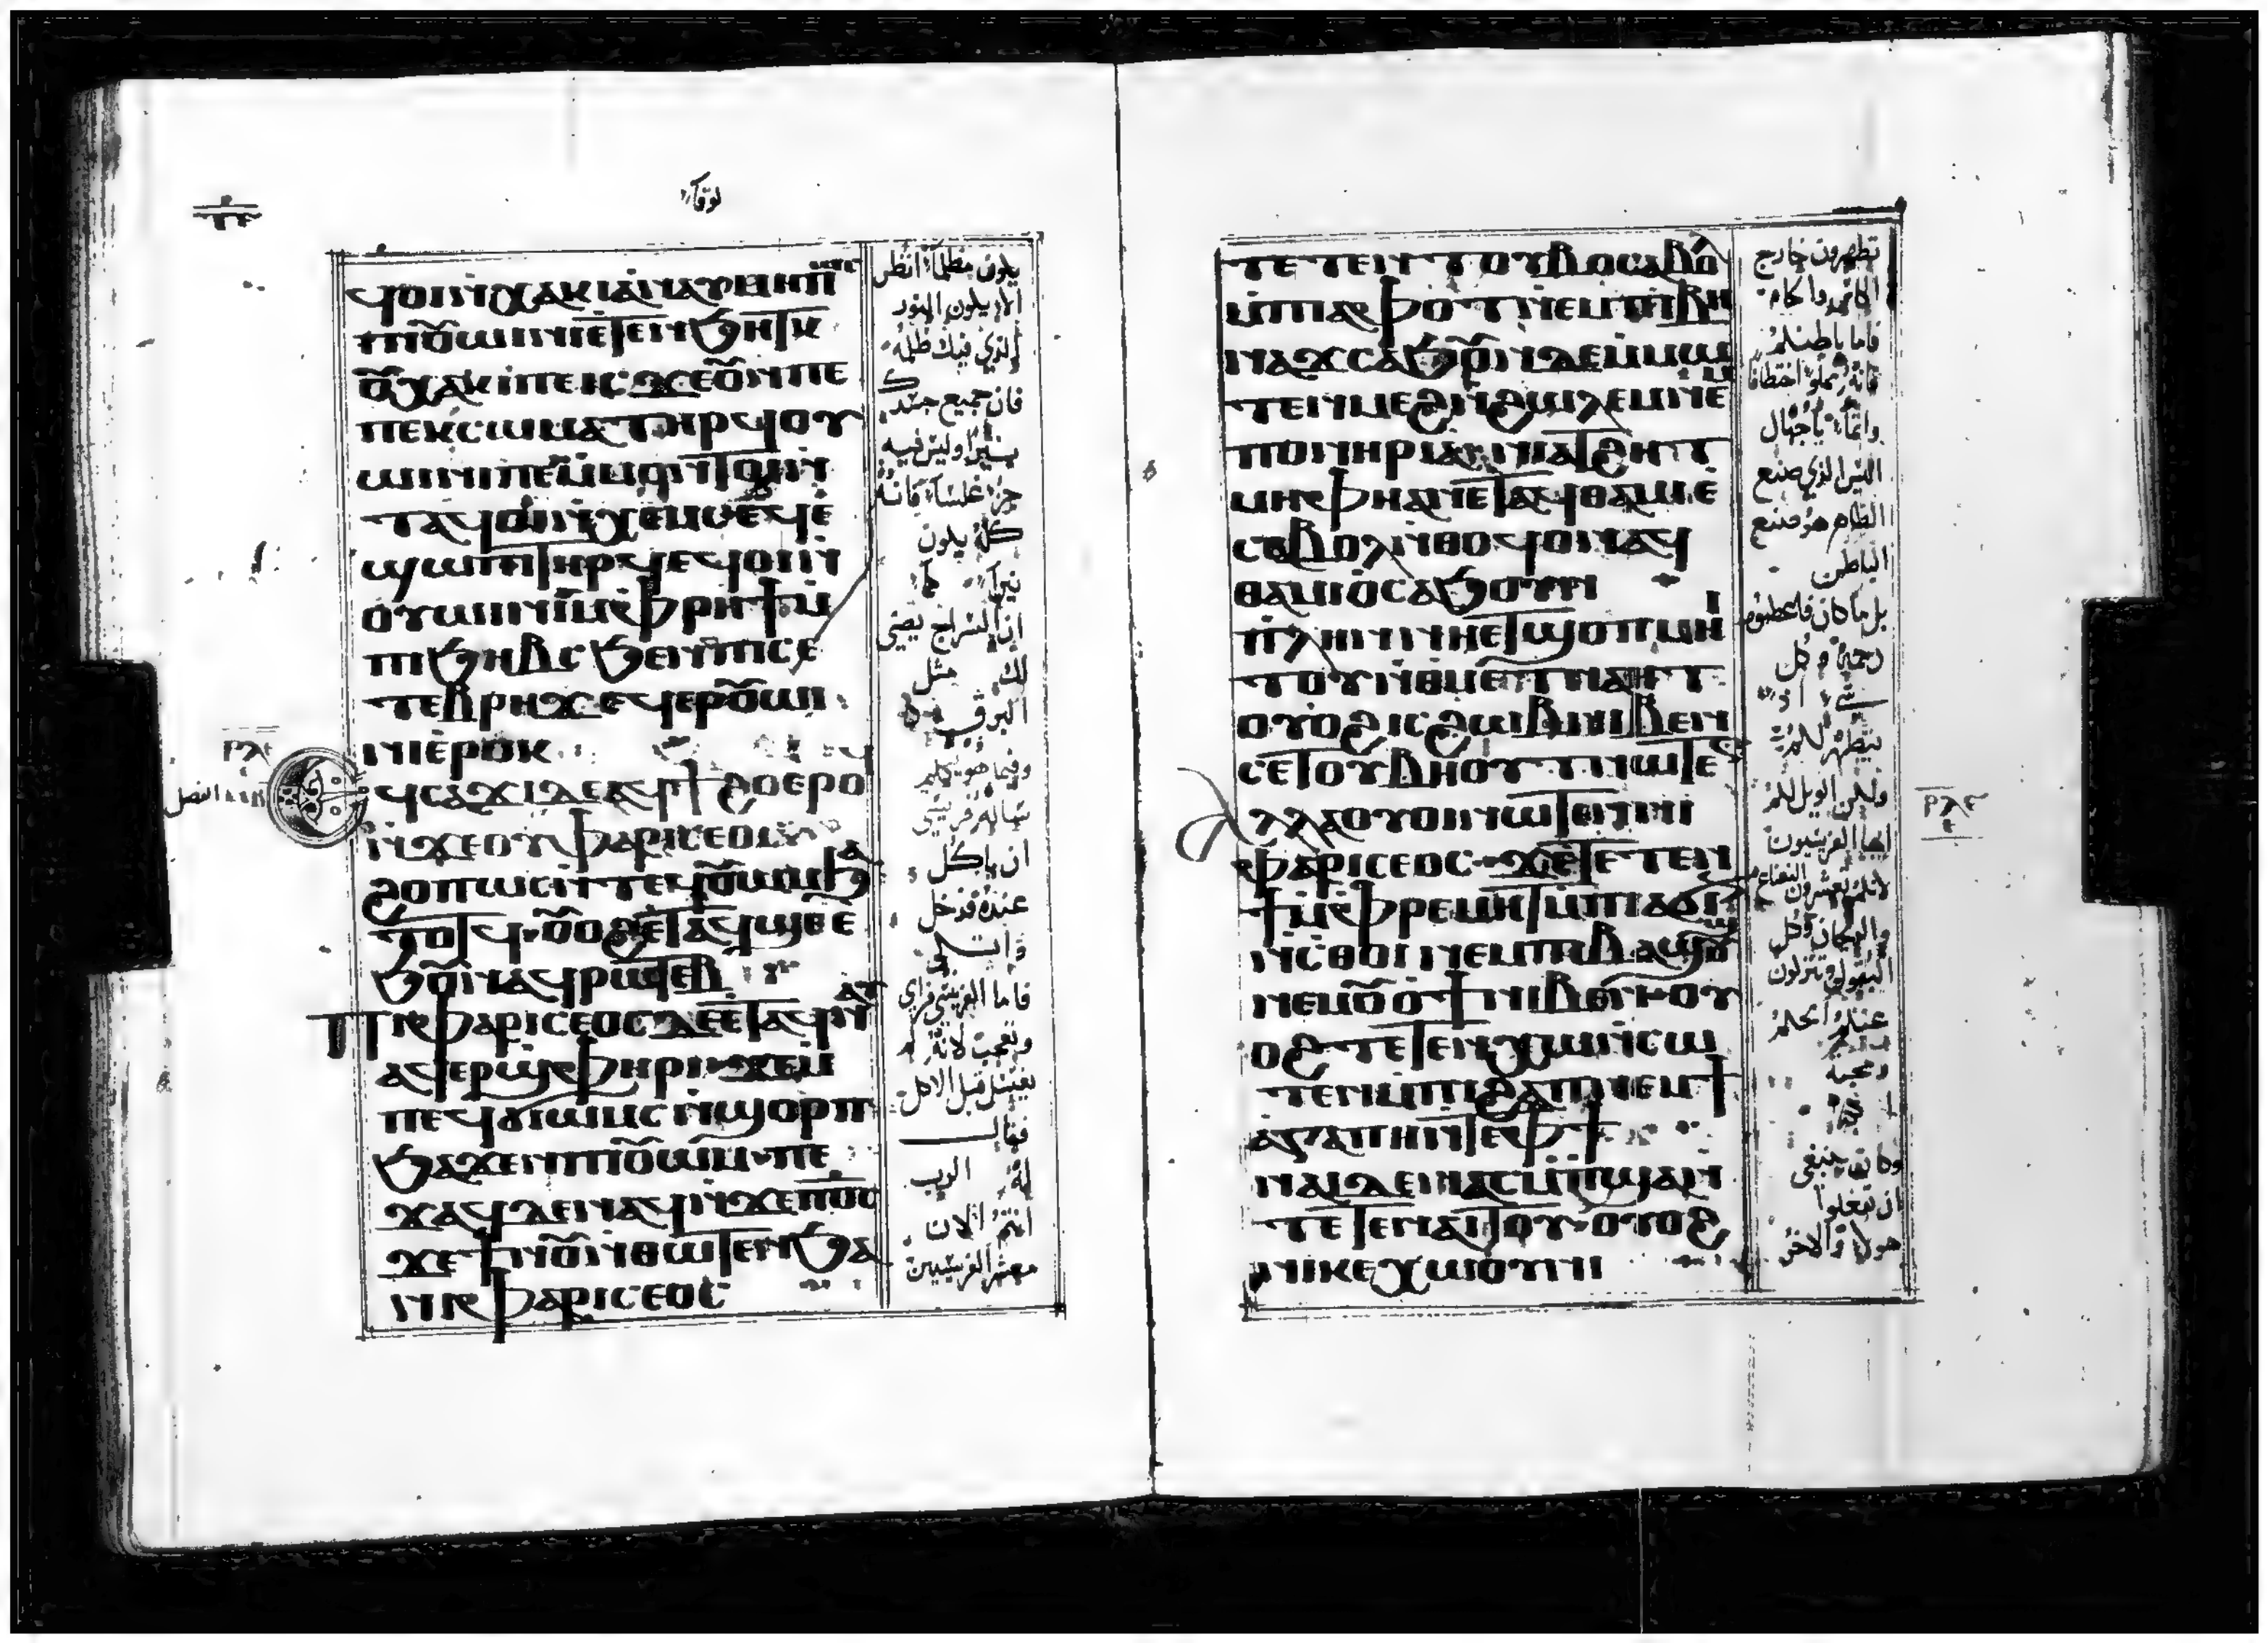 لوقا
ϥⲟⲓⲛⲭⲁⲕⲓⲁⲛⲁⲩ
ⲡⲓⲟ̅ⲱⲓⲛⲓⲉⲧⲉⲛϧⲏⲧⲕ
ⲟ̅ⲭⲁⲕⲓⲡⲉⲓⲥϫⲉⲟ̅ⲛⲡⲉ
ⲡⲉⲕⲥⲱⲙⲁⲧⲏⲣϥⲟⲩ
ⲱⲓⲛⲓⲡⲉⲙ̀ⲙⲟⲛⲧⲟⲓⲛ
ⲧⲁϥⲟⲓⲛⲭⲉⲙⲥⲉϥⲉ̀
ϣⲱⲡⲓⲧⲏⲣϥⲉϥⲟⲓⲛ
ⲟⲩⲱⲓⲛⲓⲙ̀ⲫⲣⲏϯⲙ
ⲡⲓϧⲏⲃⲥϧⲉⲛⲡⲥⲉ
ⲧⲉⲃⲣⲏϫⲉϥⲉⲣⲟ̅ⲱⲓ
ⲛⲓⲉ̀ⲣⲟⲕ
ϥⲥⲁϫⲓⲇⲉⲁϥϯϩⲟⲉⲣⲟ
ⲛ̀ϫⲉⲟⲩⲫⲁⲣⲓⲥⲉⲟⲥ
ϩⲟⲡⲱⲥⲛⲧⲉϥⲟ̅ⲱⲙϧⲁ
ⲧⲟⲧϥ·ⲟ̅ⲟϩⲉⲧⲁϥϣⲉⲉ̀
ϧⲟⲩⲛⲁϥⲣⲱⲧⲉⲃ
ⲡⲓⲫⲁⲣⲓⲥⲉⲟⲥⲇⲉⲉⲧⲁϥⲛⲁⲩ
ⲁϥⲉⲣϣⲫⲏⲣⲓ·ϫⲉⲙ̀
ⲡⲉϥϭⲓⲱⲙⲥⲛ̀ϣⲟⲣⲡ
ϧⲁϫⲉⲛⲡⲓⲟ̅ⲱⲙ·ⲡⲉ
ϫⲁϥⲇⲉⲛⲁϥⲛ̀ϫⲉⲡⲟ̅ⲥ̅
ϫⲉϯⲛⲟ̅ⲛⲑⲱⲧⲉⲛϧⲁ
ⲛⲓⲫⲁⲣⲓⲥⲉⲟⲥ
يكون مظلما انظر
الا يكون النور
الذي فيك ظلمة
فان جميع جسدك
نيرا وليس فيه
جزء غلسا فانه
كله يكون
نيرا كما
ان السراج يضي
لك مثل
البرق
وفيما هو يتكلم
ساله فريسي
ان ياكل
عنده فدخل
واتكى
فاما الفريسي فراى
وتعجب لانه لم
يغتسل قبل الاكل
فقال
له الرب
انتم الان
معشر الفريسيين
ⲧⲉⲧⲉⲛⲧⲟⲩⲃⲟⲥⲁⲃⲟ
ⲙ̀ⲡⲓⲁⲫⲟⲧⲛⲉⲙⲡⲓⲃⲓ
ⲛⲁϫⲥⲁϧⲟ̅ⲛⲇⲉⲙ̀ⲙⲱ
ⲧⲉⲛⲙⲉϩⲛ̀ϩⲱⲗⲉⲙⲛⲉⲙ
ⲡⲟⲛⲏⲣⲓⲁⲛⲓⲁⲧϩⲏⲧ
ⲙⲏⲫⲏⲁⲛⲉⲧⲁϥⲑⲁⲙⲉ̀
ⲥⲁⲃⲟⲗⲛ̀ⲑⲟϥⲟⲛⲁϥ
ⲑⲁⲙⲓⲟ̀ⲥⲁϧⲟⲩⲛ
ⲡⲗⲏⲛⲛⲏⲉⲧϣⲟⲡⲙⲙ
ⲧⲟⲩⲛ̀ⲑⲙⲉⲧⲛⲁⲏⲧ
ⲟⲩⲟϩⲓⲥϩⲱⲃⲛⲓⲃⲉⲛ
ⲥⲉⲧⲟⲩⲃⲏⲟⲩⲧⲛⲱⲧⲉ
ⲁⲗⲗⲁⲟⲩⲟⲓⲛⲱⲧⲉⲛⲛⲓ
ⲫⲁⲣⲓⲥⲉⲟⲥ·ϫⲉⲧⲉⲧⲉⲛ
ϯⲙ̀ⲫⲣⲉⲙⲏⲧⲙ̀ⲡⲓⲁϭⲓⲛ
ⲛⲥⲑⲟⲓⲛⲉⲙⲡⲓⲃⲁϣⲟ̅ϣ
ⲛⲉⲙⲟ̅ⲟϯⲛⲓⲃⲉⲛ·ⲟⲩ
ⲟϩⲧⲉⲧⲉⲛⲭⲱⲛ̀ⲥⲱ
ⲧⲉⲛⲙⲡⲓϩⲁⲡⲛⲉⲙϯ
ⲁⲅⲁⲡⲏⲛ̀ⲧⲉⲫϯ
ⲛⲁⲓⲇⲉⲛⲁⲥⲙ̀ⲡϣⲁⲛ
ⲧⲉⲧⲉⲛⲁⲓⲧⲟⲩ·ⲟⲩⲟϩ
ⲛⲓⲕⲉⲭⲱⲟⲩⲛⲓ
ⲣⲗⲉ
تطهرون خارج
الكاس والجام
فاما باطنكم
فانه مملو اختطافا
واثما يا جهال
اليس الذي صنع
الظاهر هو صنع
الباطن
بل ما كان فاعطوه
رحمة وكل
شي
يتطهر لكم
ولكن الويل لكم
ايها الفريسيون
لانكم تعشرون النعناع
والريحان وكل
البقول وتتركون
عنكم الحكم
ومحبة
وكان ينبغي
ان تفعلوا
هولاء والاخر